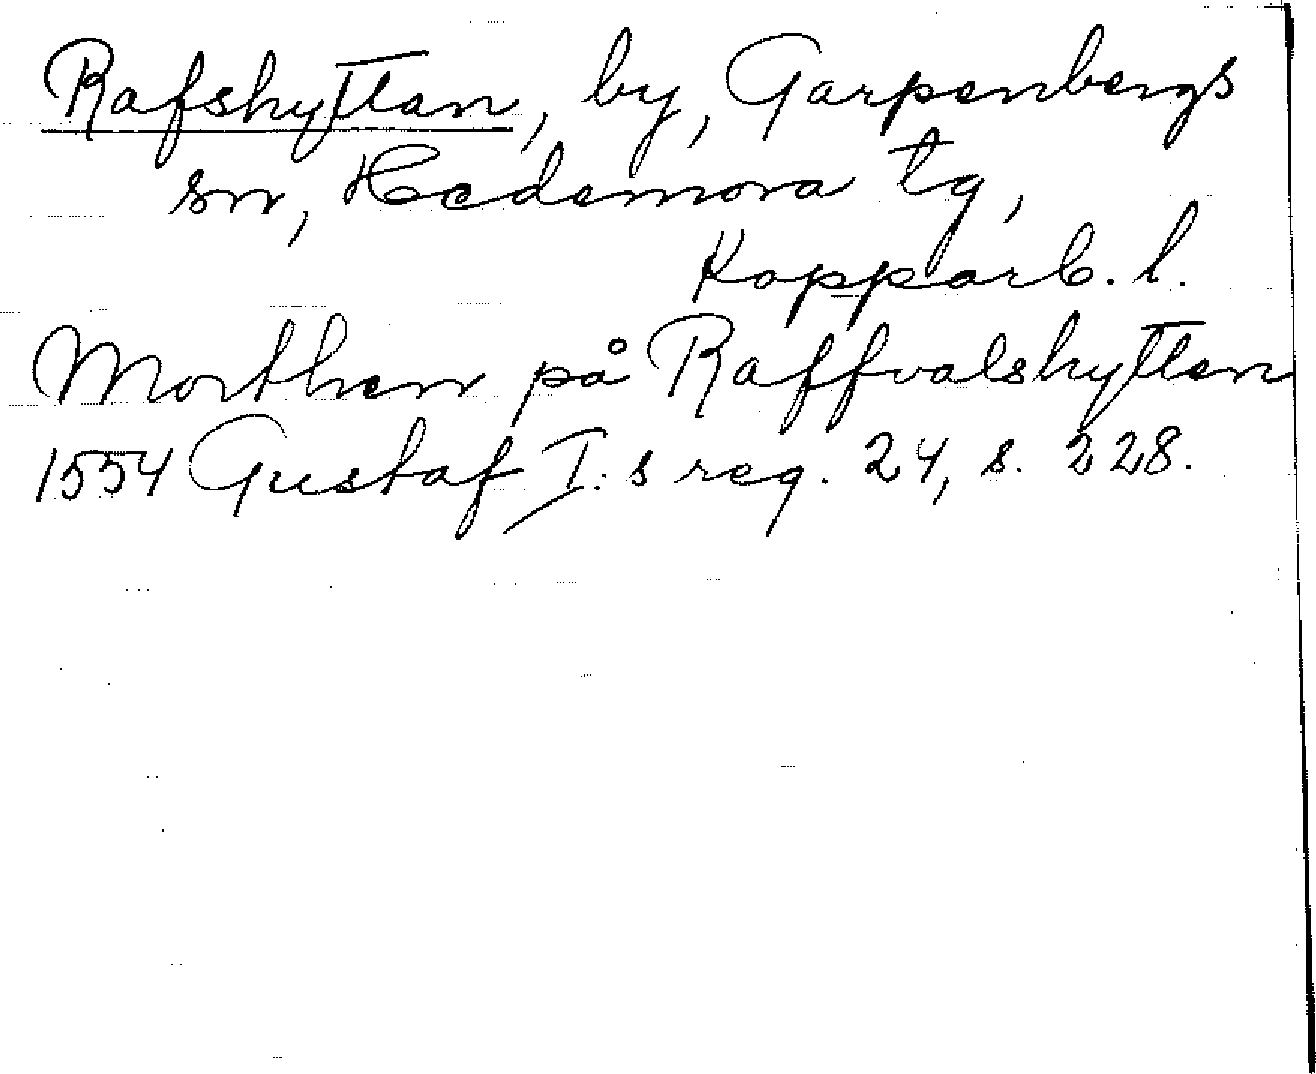 Rafshyttan, by, Garpenbergs
sn, Hedemora tg,
Kopparb. l.
Morthen på Raffvalshytten
1554 Gustaf I:s reg. 24, s. 228.